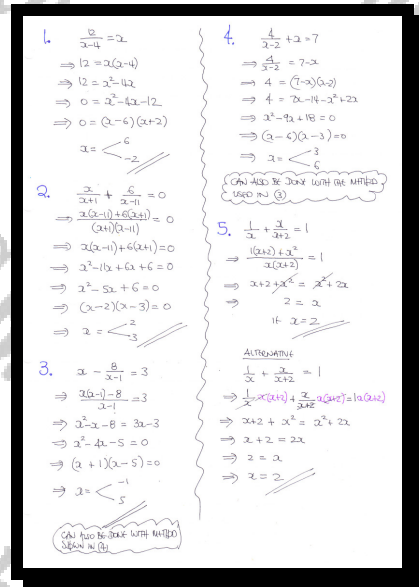 1. 12/(x-4) = x
⇒ 12 = x(x-4)
⇒ 12 = x²-4x
⇒ 0 = x²-4x-12
⇒ 0 = (x-6)(x+2)
x = < 6
-2
2. x/(x+1) + 6/(x-11) = 0
⇒ (x(x-11)+6(x+1))/((x+1)(x-11)) = 0
⇒ x(x-11)+6(x+1) = 0
⇒ x²-11x+6x+6 = 0
⇒ x²-5x+6 = 0
⇒ (x-2)(x-3) = 0
⇒ x = < 2
3
3. x - 8/(x-1) = 3
⇒ (x(x-1)-8)/(x-1) = 3
⇒ x²-x-8 = 3x-3
⇒ x²-4x-5 = 0
⇒ (x+1)(x-5) = 0
⇒ x = < -1
5
CAN ALSO BE DONE WITH METHOD
SHOWN IN (4)
4. 4/(x-2) + x = 7
⇒ 4/(x-2) = 7-x
⇒ 4 = (7-x)(x-2)
⇒ 4 = 7x-14-x²+2x
⇒ x²-9x+18 = 0
⇒ (x-6)(x-3) = 0
⇒ x = < 3
6
CAN ALSO BE DONE WITH THE METHOD
USED IN (3)
5. 1/x + x/(x+2) = 1
⇒ (1(x+2)+x²)/(x(x+2)) = 1
⇒ x+2+x² = x²+2x
⇒ 2 = x
If x = 2
ALTERNATIVE
1/x + x/(x+2) = 1
⇒ 1/x x(x+2) + x/(x+2) x(x+2) = 1x(x+2)
⇒ x+2 + x² = x²+2x
⇒ x+2 = 2x
⇒ 2 = x
⇒ x = 2